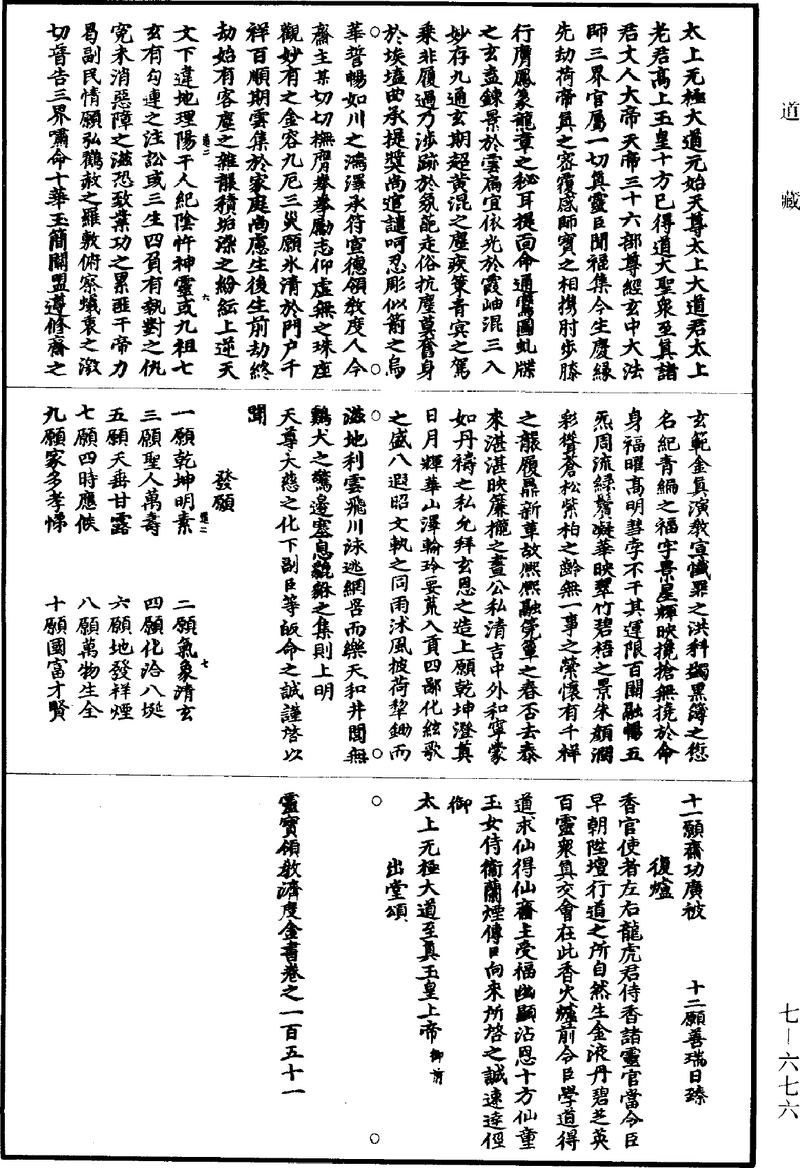 道藏
七—六七六
太上无極大道元始天尊太上大道君太上
老君高上玉皇十方已得道大聖衆至真諸
君丈人大帝天帝三十六部尊經玄中大法
師三界官屬一切真靈臣聞福集今生慶緣
先劫荷帝真之密覆感師寶之相携肘步膝
行膺鳳篆龍章之秘耳提面命通鴈圖虬牒
之玄盍鍊景於雲扃宜依光於霞岫混三入
妙存九通玄期超黄混之塵疾策青冥之駕
乘非履過乃涉跡於氛𦿆走俗抗塵莫奮身
於埃壒曲承提奬尚逭譴呵忍彫似箭之烏
華誓暢如川之鴻澤承符宣德領教度人今
齋主某切切撫膺拳拳勵志仰虚無之珠座
觀妙有之金容九厄三災願氷清於門户千
祥百順期雲集於家庭尚慮生後生前劫終
劫始有客塵之雜報積垢染之紛紜上逆天
文下違地理陽干人紀陰忤神靈或九祖七
玄有勾連之注訟或三生四負有執對之仇
寃未消惡障之滋恐致業功之累匪干帝力
曷副民情願弘鶴赦之羅敷俯察蟻衷之激
切音告三界嘯命十華玉簡關盟遵修齋之
玄範金真演教宣懺罪之洪科蠲黑簿之愆
名紀青編之福字景星輝映攙搶無撓於命
身福曜高明彗孛不干其運限百關融暢五
炁周流緑鬢凝華映翠竹碧梧之景朱顏潤
彩聳蒼松紫柏之齡無一事之縈懷有千祥
之襲履鼎新革故熙熙融筦簟之春否去泰
來湛湛映簾櫳之晝公私清吉中外和寧蒙
如丹禱之私允拜玄恩之造上願乾坤澄莫
日月輝華山澤輪玲要荒入貢四鄙化絃歌
之盛八遐昭文軌之同雨沐風披荷犂鋤而
滋地利雲飛川泳逃網罟而樂天和井閭無
鷄犬之驚邊塞息貔貅之集則上明
天尊大慈之化下副臣等皈命之誠謹啓以
聞
發願
一願乾坤明素　二願氣象清玄
三願聖人萬壽　四願化洽八埏
五願天垂甘露　六願地發祥煙
七願四時應候　八願萬物生全
九願家多孝悌　十願國富才賢
十一願齋功廣被　十二願善瑞日臻
復爐
香官使者左右龍虎君侍香諸靈官當令臣
早朝陞壇行道之所自然生金液丹碧芝英
百靈衆真交會在此香火爐前令臣學道得
道求仙得仙齋主受福幽顯沾恩十方仙童
玉女侍衛蘭煙傳臣向來所啓之誠速達徑
御
太上无極大道至真玉皇上帝御前
出堂頌
靈寶領教濟度金書卷之一百五十一